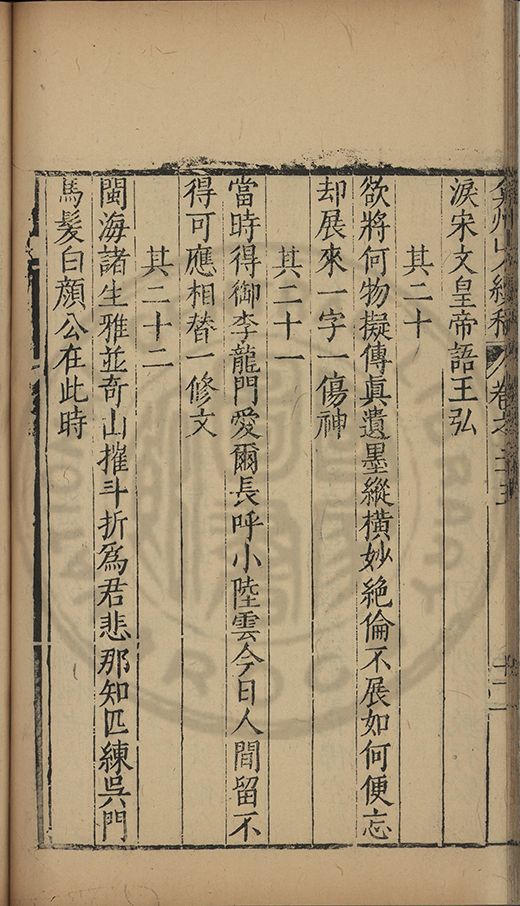 弇州山人續稿 卷之二十五 十二
淚宋文皇帝語王弘
其二十
欲將何物擬傳眞遺墨縱橫妙絶倫不展如何便忘
却展來一字一傷神
其二十一
當時得御李龍門愛爾長呼小陸雲今日人間留不
得可應相替一修文
其二十二
閩海諸生雅並奇山摧斗折爲君悲那知匹練吳門
馬髮白顔公在此時